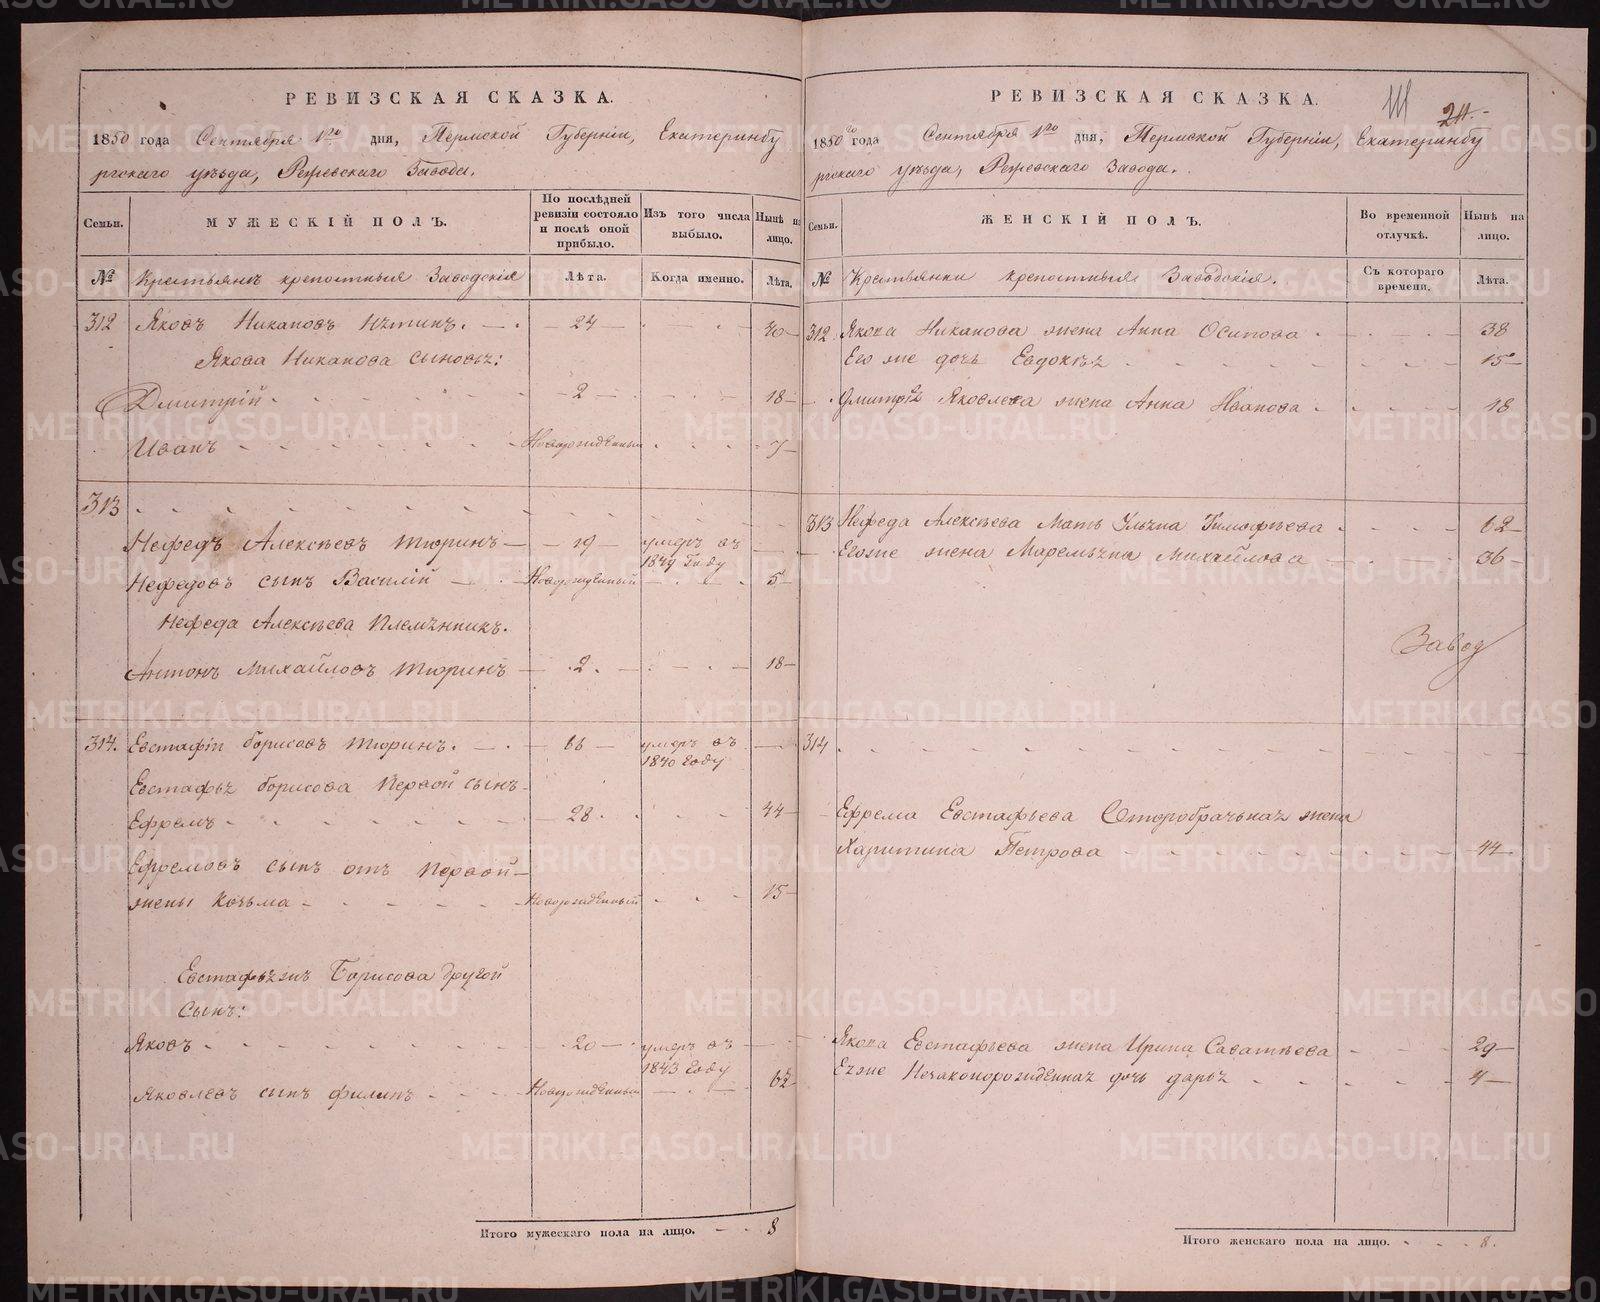 РЕВИЗСКАЯ СКАЗКА.
1850 года Сентября 1го дня, Пермской Губерніи, Екатеринбу
ргскаго уѣзда, Режевскаго Завода.
Семьи.
МУЖЕСКІЙ ПОЛЪ.
По послѣдней ревизіи состояло и послѣ оной прибыло.
Изъ того числа выбыло.
Нынѣ на лицо.
№
Крестьянъ крепостныя Заводскія
Лѣта.
Когда именно.
Лѣта.
312 Яковъ Никаповъ - 24 - 40
Якова Никапова сыновьz:
Дмитрій - 2 - 18
Иванъ - Новорожденный - 7
313
Нефедъ Алексѣевъ Тюринъ - 19 - умеръ въ 1849 Году
Нефедовъ сынъ Василій - Новорожденный - 5
Нефеда Алексѣева Племѣнникъ.
Антонъ Михайловъ Тюринъ - 2. - 18
314. Евстафіи борисовъ Тюринъ. - 66 - умеръ въ 1840 Году
Евстафьz борисова Первой сынъ
Ефремъ - 28. - 44
Ефремовъ сынъ отъ Первой
жены Козьма - Новорожденный - 15
Борисова другой
сынъ:
Яковъ - 20 - умеръ въ 1843 Году
Яковлевъ сынъ филипъ - Новорожденный
Итого мужескаго пола на лицо. - - 8
РЕВИЗСКАЯ СКАЗКА.
24.
1850го года Сентября 1го дня, Пермской Губерніи, Екатеринбу
ргскаго уѣзда, Режевскаго Завода.
Семьи.
ЖЕНСКІЙ ПОЛЪ.
Во временной отлучкѣ.
Нынѣ на лицо.
№
Крестьянки крепостныя Заводскія.
Съ котораго времени.
Лѣта.
312. Якова Никапова жена Анна Осипова - 38
Его же дочь Евдокѣz - 15
Яковлева жена Анна Иванова - 18
313 Нефеда Алексѣева Мать Ульzна Тимофѣева - 62
Егоже жена Маремьzна Михайлова - 36
Завод
314
Ефрема Евстафьева Второбрачьнаz жена
Харитина Петрова - 44
Якова Евстафьева жена Ирина Саватѣева - 29
Еzже Незаконорожденнаz дочь дарьz - 4
Итого женскаго пола на лицо. - - - 8.
METRIKI.GASO-URAL.RU